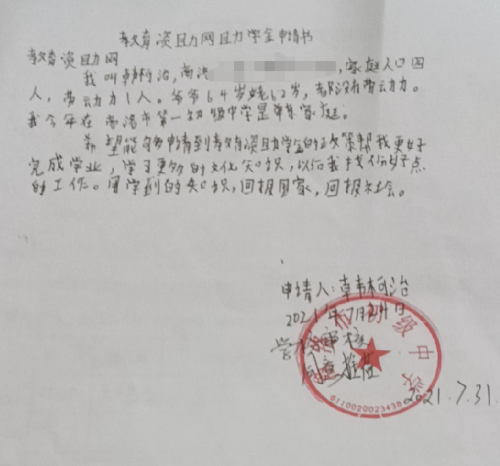 教育资助网助学金申请书
教育资助网
我叫韩柯治,商洛 家庭人口四
人,劳动力1人。爷爷64岁 62岁,都没有劳动力。
我今年在商洛市第一初级中学是单亲家庭。
希望能够申请到教育资助学金的政策帮我更好
完成学业,学习更多的文化知识,以后我找份好点
的工作。用学到的知识,回报国家,回报社会。
申请人:韩柯治
2021年7月 日
学校审核
同意推荐
初级中学
6110020023438
2021.7.31.